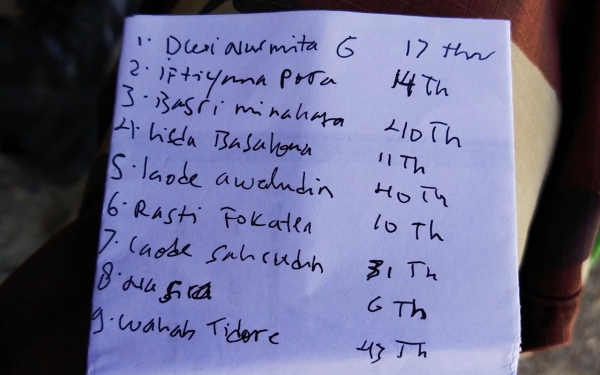 1. Dwi Nurmita G 17 thn
2. Iftiynna Pora 14 Th
3. Basri minahasa 40 Th
4. Lisda Basahona 11 Th
5. laode awaludin 40 Th
6. Rasti Fokatea 10 Th
7. laode Sahrudin 31 Th
8. Nasra 6 Th
9. Wahab Tidore 43 Th